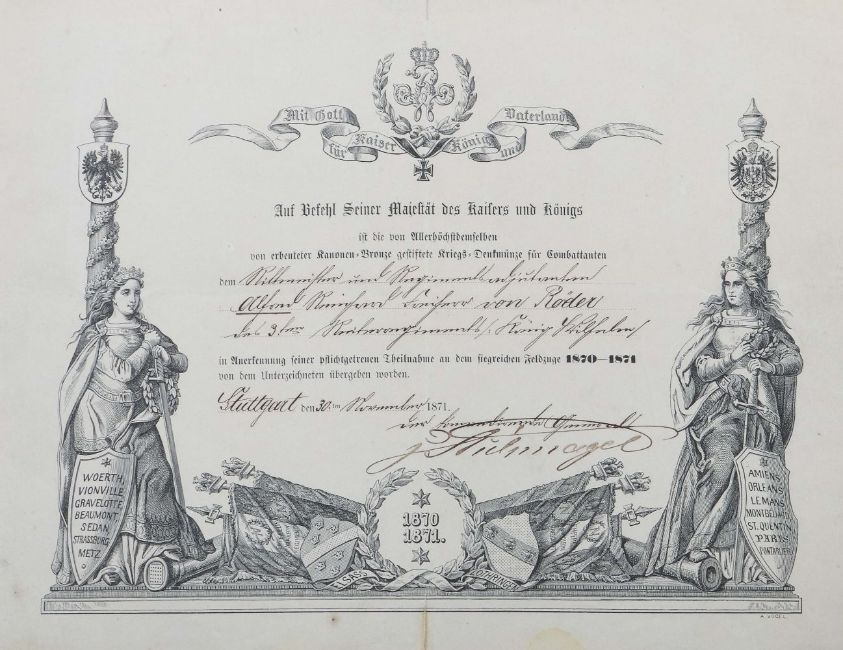 Mit Gott für Kaiser König und Vaterland
Auf Befehl Seiner Majestät des Kaisers und Königs
ist die von Allerhöchstdemselben
von erbeuteter Kanonen-Bronze gestiftete Kriegs-Denkmünze für Combattanten
dem Rittmeister und Regimentsadjutanten
Alfred Reinhard Freiherr von Röder
des 3ten Reiterregiments/: König Wilhelm/
in Anerkennung seiner pflichtgetreuen Theilnahme an dem siegreichen Feldzuge 1870—1871
von dem Unterzeichneten übergeben worden.
Stuttgart den 30.ten November 1871.
der General
WOERTH,
VIONVILLE
GRAVELOTTE
BEAUMONT
SEDAN
STRASSBURG
METZ.
1870
1871.
ELSASS
AMIENS
ORLEANS
LE MANS
ST. QUENTIN
PARIS
PONTARLIER
A. VOGEL.